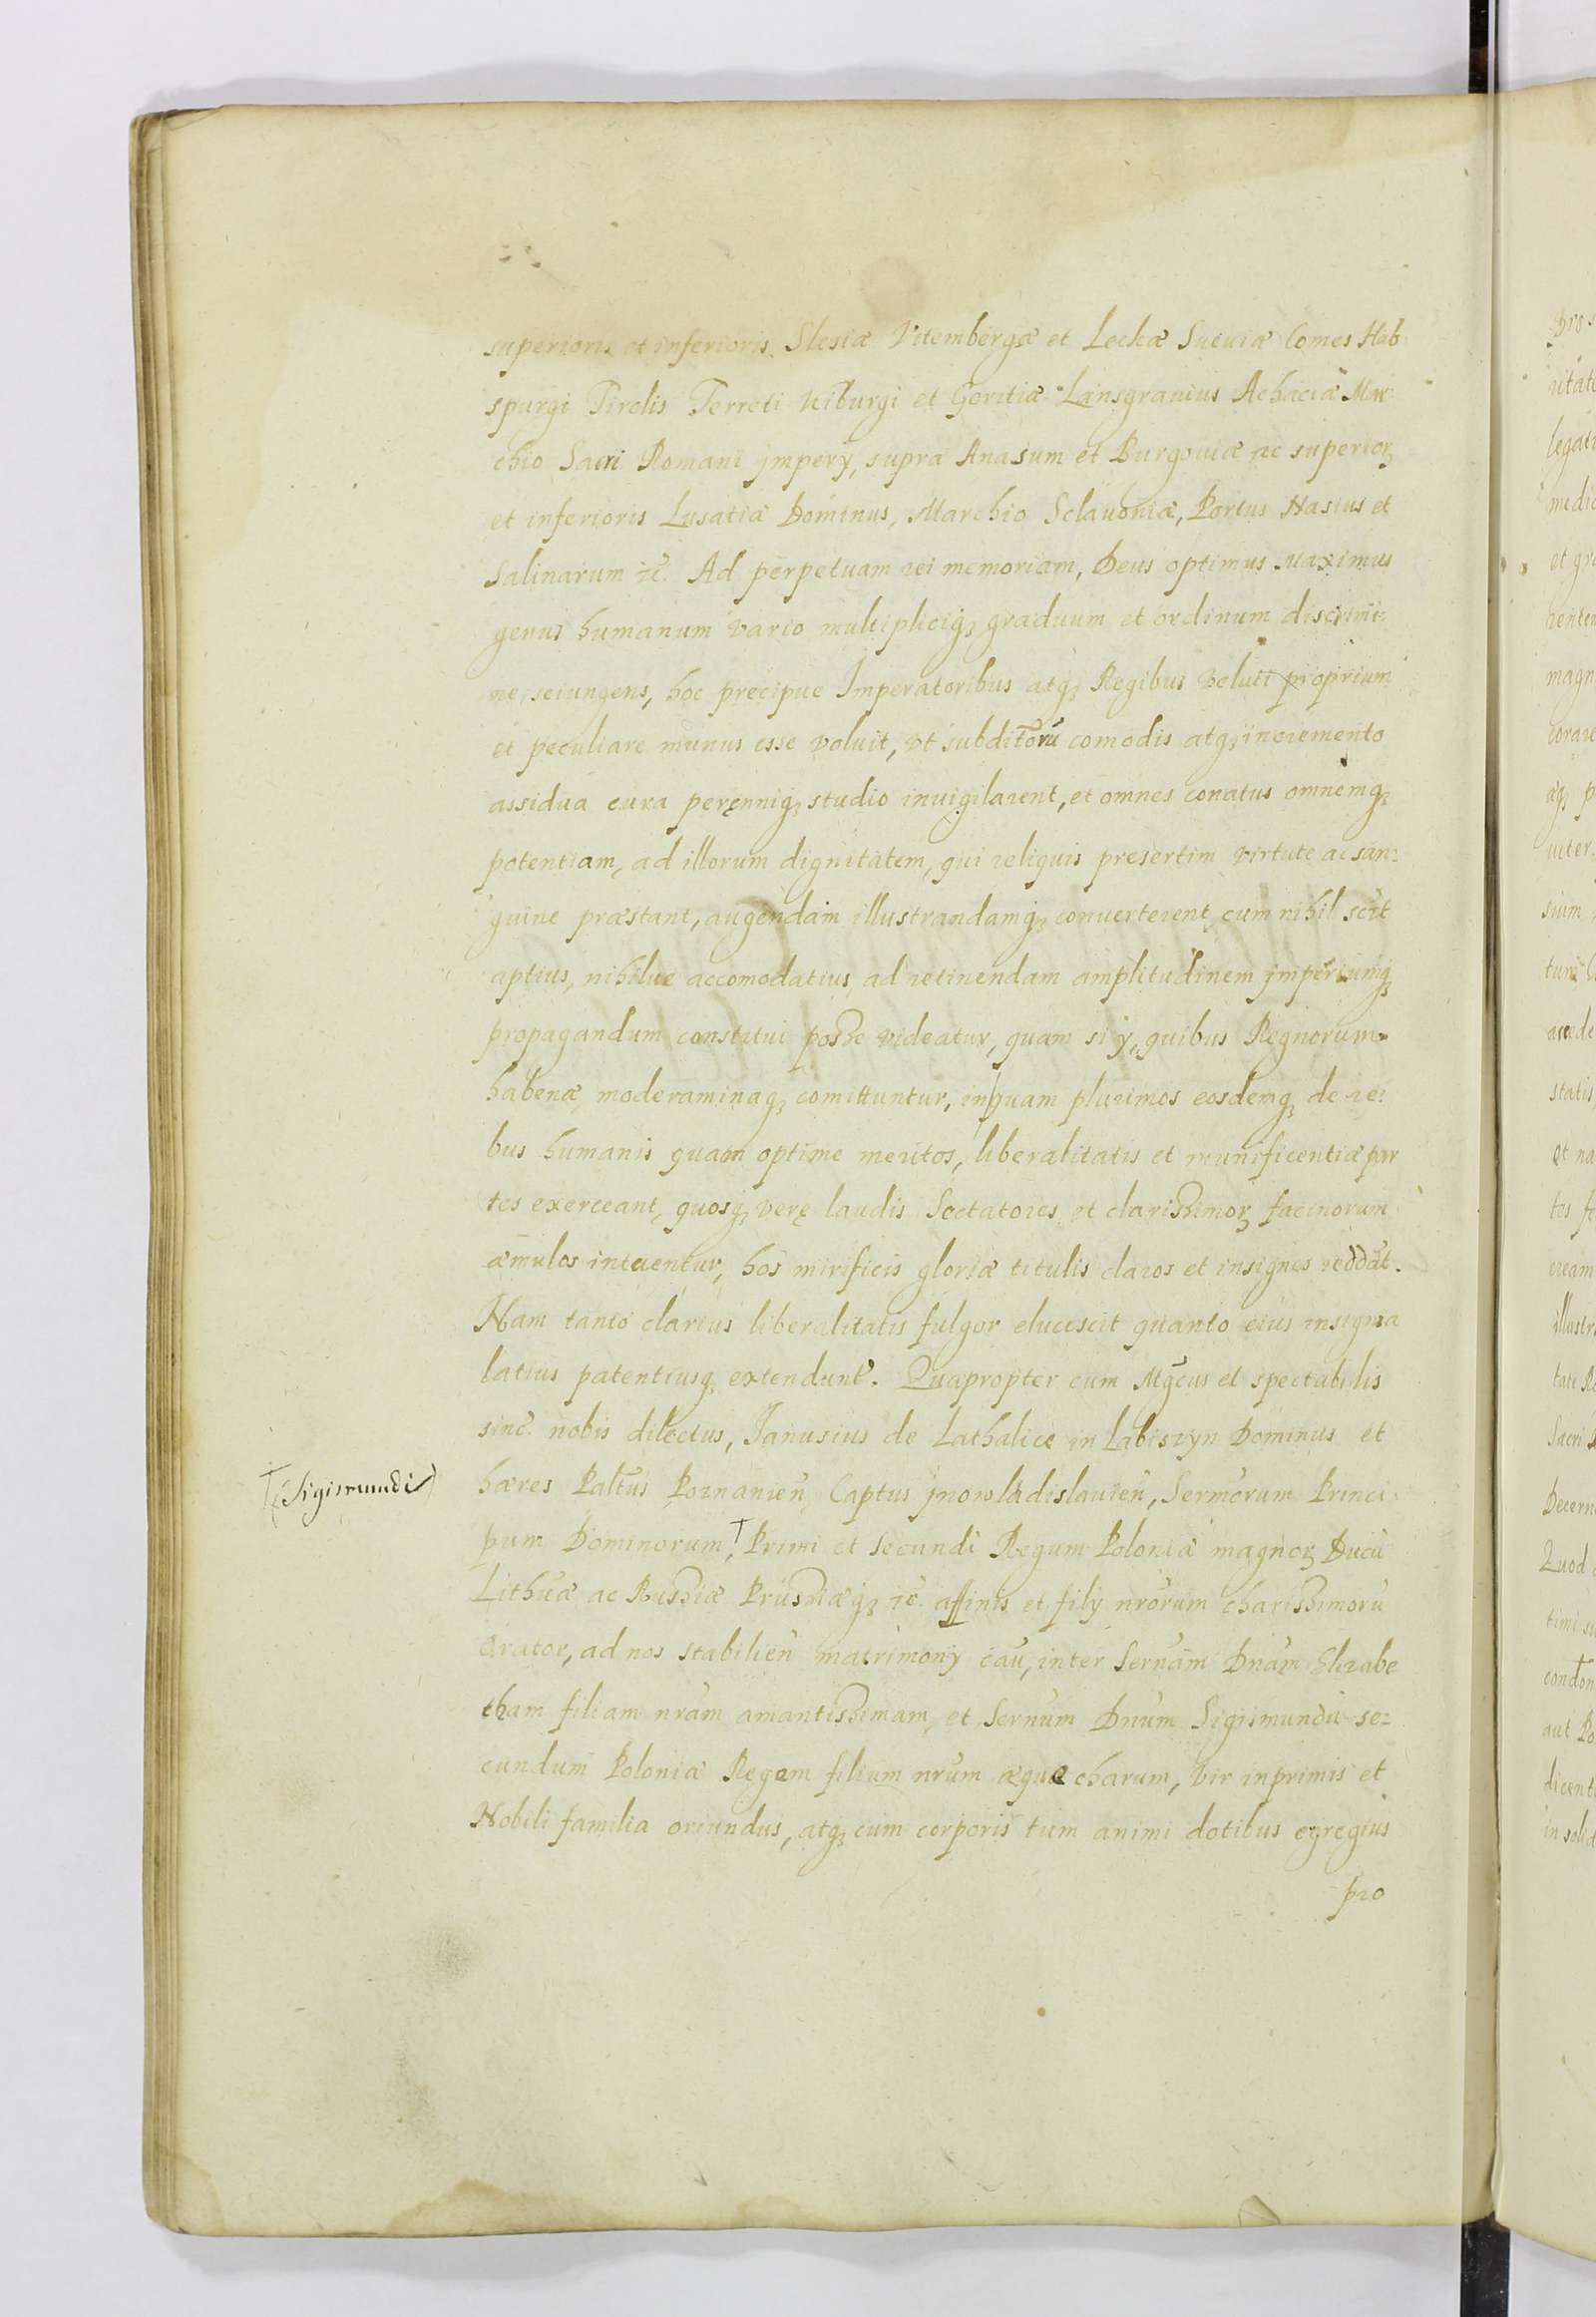 superioris et inferioris Slesiæ Vitembergæ et Leckæ Sueuiæ Comes Hab
spurgi Tirolis Ferreti Kiburgi et Goritiæ Lansgrauius Achaciæ Mar
chio Sacri Romani jmperÿ, supra Anasum et Burgouiæ ac superioꝝ
et inferioris Lusatiæ Dominus, Marchio Sclauoniæ, Portus Nasius et
Salinarum ꝛc̃. Ad perpetuam rei memoriam, Deus optimus Maximus
genus humanum vario multipliciqꝫ graduum et ordinum discrimi=
ne, seiungens, hoc precipue Imperatoribus atqꝫ Regibus veluti proprium
et peculiare munus esse voluit, vt subditorũ comodis atqꝫ incremento
assidua cura peręnniqꝫ studio inuigilarent, et omnes conatus omnemqꝫ
potentiam, ad illorum dignitatem, qui reliquis presertim virtute ac san:
guine præstant, augendam illustrandamqꝫ conuerterent, cum nihil scit
aptius, nihilue accomodatius, ad retinendam amplitudinem jmperiumqꝫ
propagandum constitui posse videatur, quam si ÿ, quibus Regnorum
habenæ, moderaminaqꝫ comittuntur, in quam plurimos eosdemqꝫ de re:
bus humanis quam optime meritos, liberalitatis et munificentiæ par
tes exerceant, quosqꝫ verę laudis Sectatores et clarissimoꝝ facinorum
æmulos intuentur, hos mirificis gloriæ titulis claros et insignes reddãt.
Nam tanto clarius liberalitatis fulgor elucescit quanto eius insignia
latius patentiusqꝫ extendunt᷑. Quapropter cum Mg̃cus et spectabilis
sinc̃. nobis dilectus, Janusius de Lathalice in Labiszyn Dominus et
hæres Palt̃us Poznanien̄ Captus jnowladislauien̄, Serm̃orum Princi
pum Dominorum,† Primi et Secundi Regum Poloniæ magnoꝝ Ducũ
†(Sigismundi)
Lithũæ ac Russiæ Prussiæqꝫ ꝛc̃. affinis et filÿ nr̃orum charissimorũ
Orator, ad nos stabilien̄ matrimonÿ cãu, inter Sern̄am Dn̄am Elizabe
tham filiam nr̃am amantissimam, et Sern̄um Dn̄um Sigismundũ se=
cundum Poloniæ Regem filium nr̃um æque charum, vir inprimis et
Nobili familia oriundus, atqꝫ cum corporis tum animi dotibus egregius
pro